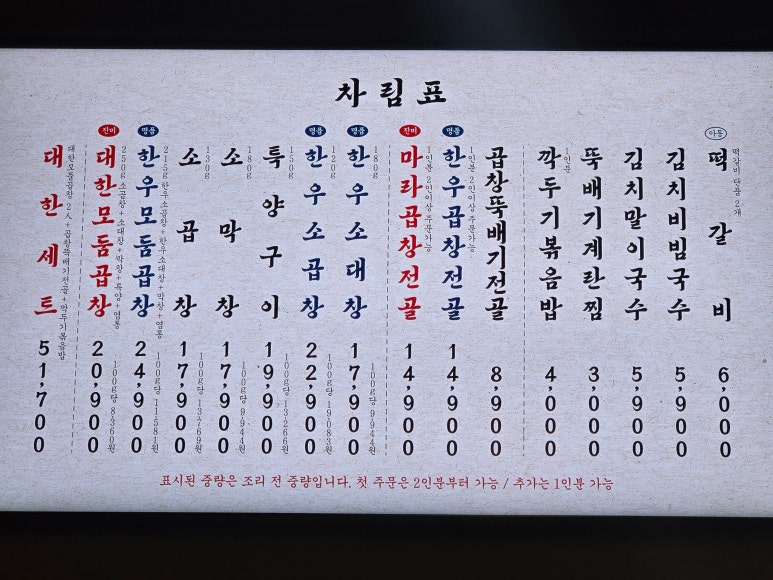 차림표
대한세트
대한모둠곱창 2人+곱창뚝배기전골+깍두기볶음밥
51,700
진미
대한모둠곱창
250g 소곱창+소대창+막창+특양+염통
20,900
100g당 8,360원
명품
한우모둠곱창
215g 한우소곱창+한우소대창+막창+염통
24,900
100g당 11,581원
소곱창
130g
17,900
100g당 13,769원
소막창
180g
17,900
100g당 9,944원
특양구이
150g
19,900
100g당 13,266원
명품
한우소곱창
120g
22,900
100g당 19,083원
명품
한우소대창
180g
17,900
100g당 9,944원
진미
마라곱창전골
1인분 2인이상 주문가능
14,900
명품
한우곱창전골
1인분 2인이상 주문가능
14,900
곱창뚝배기전골
8,900
깍두기볶음밥
1인분
4,000
뚝배기계란찜
3,000
김치말이국수
5,900
김치비빔국수
5,900
아동
떡갈비
떡갈비 단품 2개
6,000
표시된 중량은 조리 전 중량입니다. 첫 주문은 2인분부터 가능 / 추가는 1인분 가능